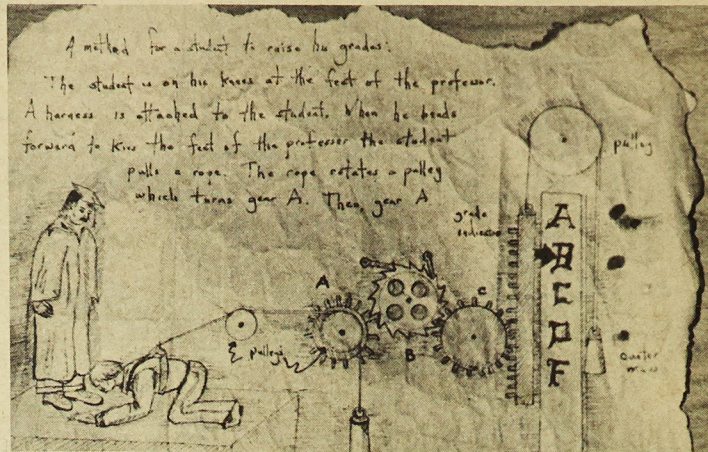 A method for a student to raise his grades:
The student is on his knees at the feet of the professor.
A harness is attached to the student. When he bends
forward to kiss the feet of the professor the student
pulls a rope. The rope rotates a pulley
which turns gear A. Then, gear A
pulley
grade
indicator
A
B
C
D
F
A
B
C
pulleys
counter
mass